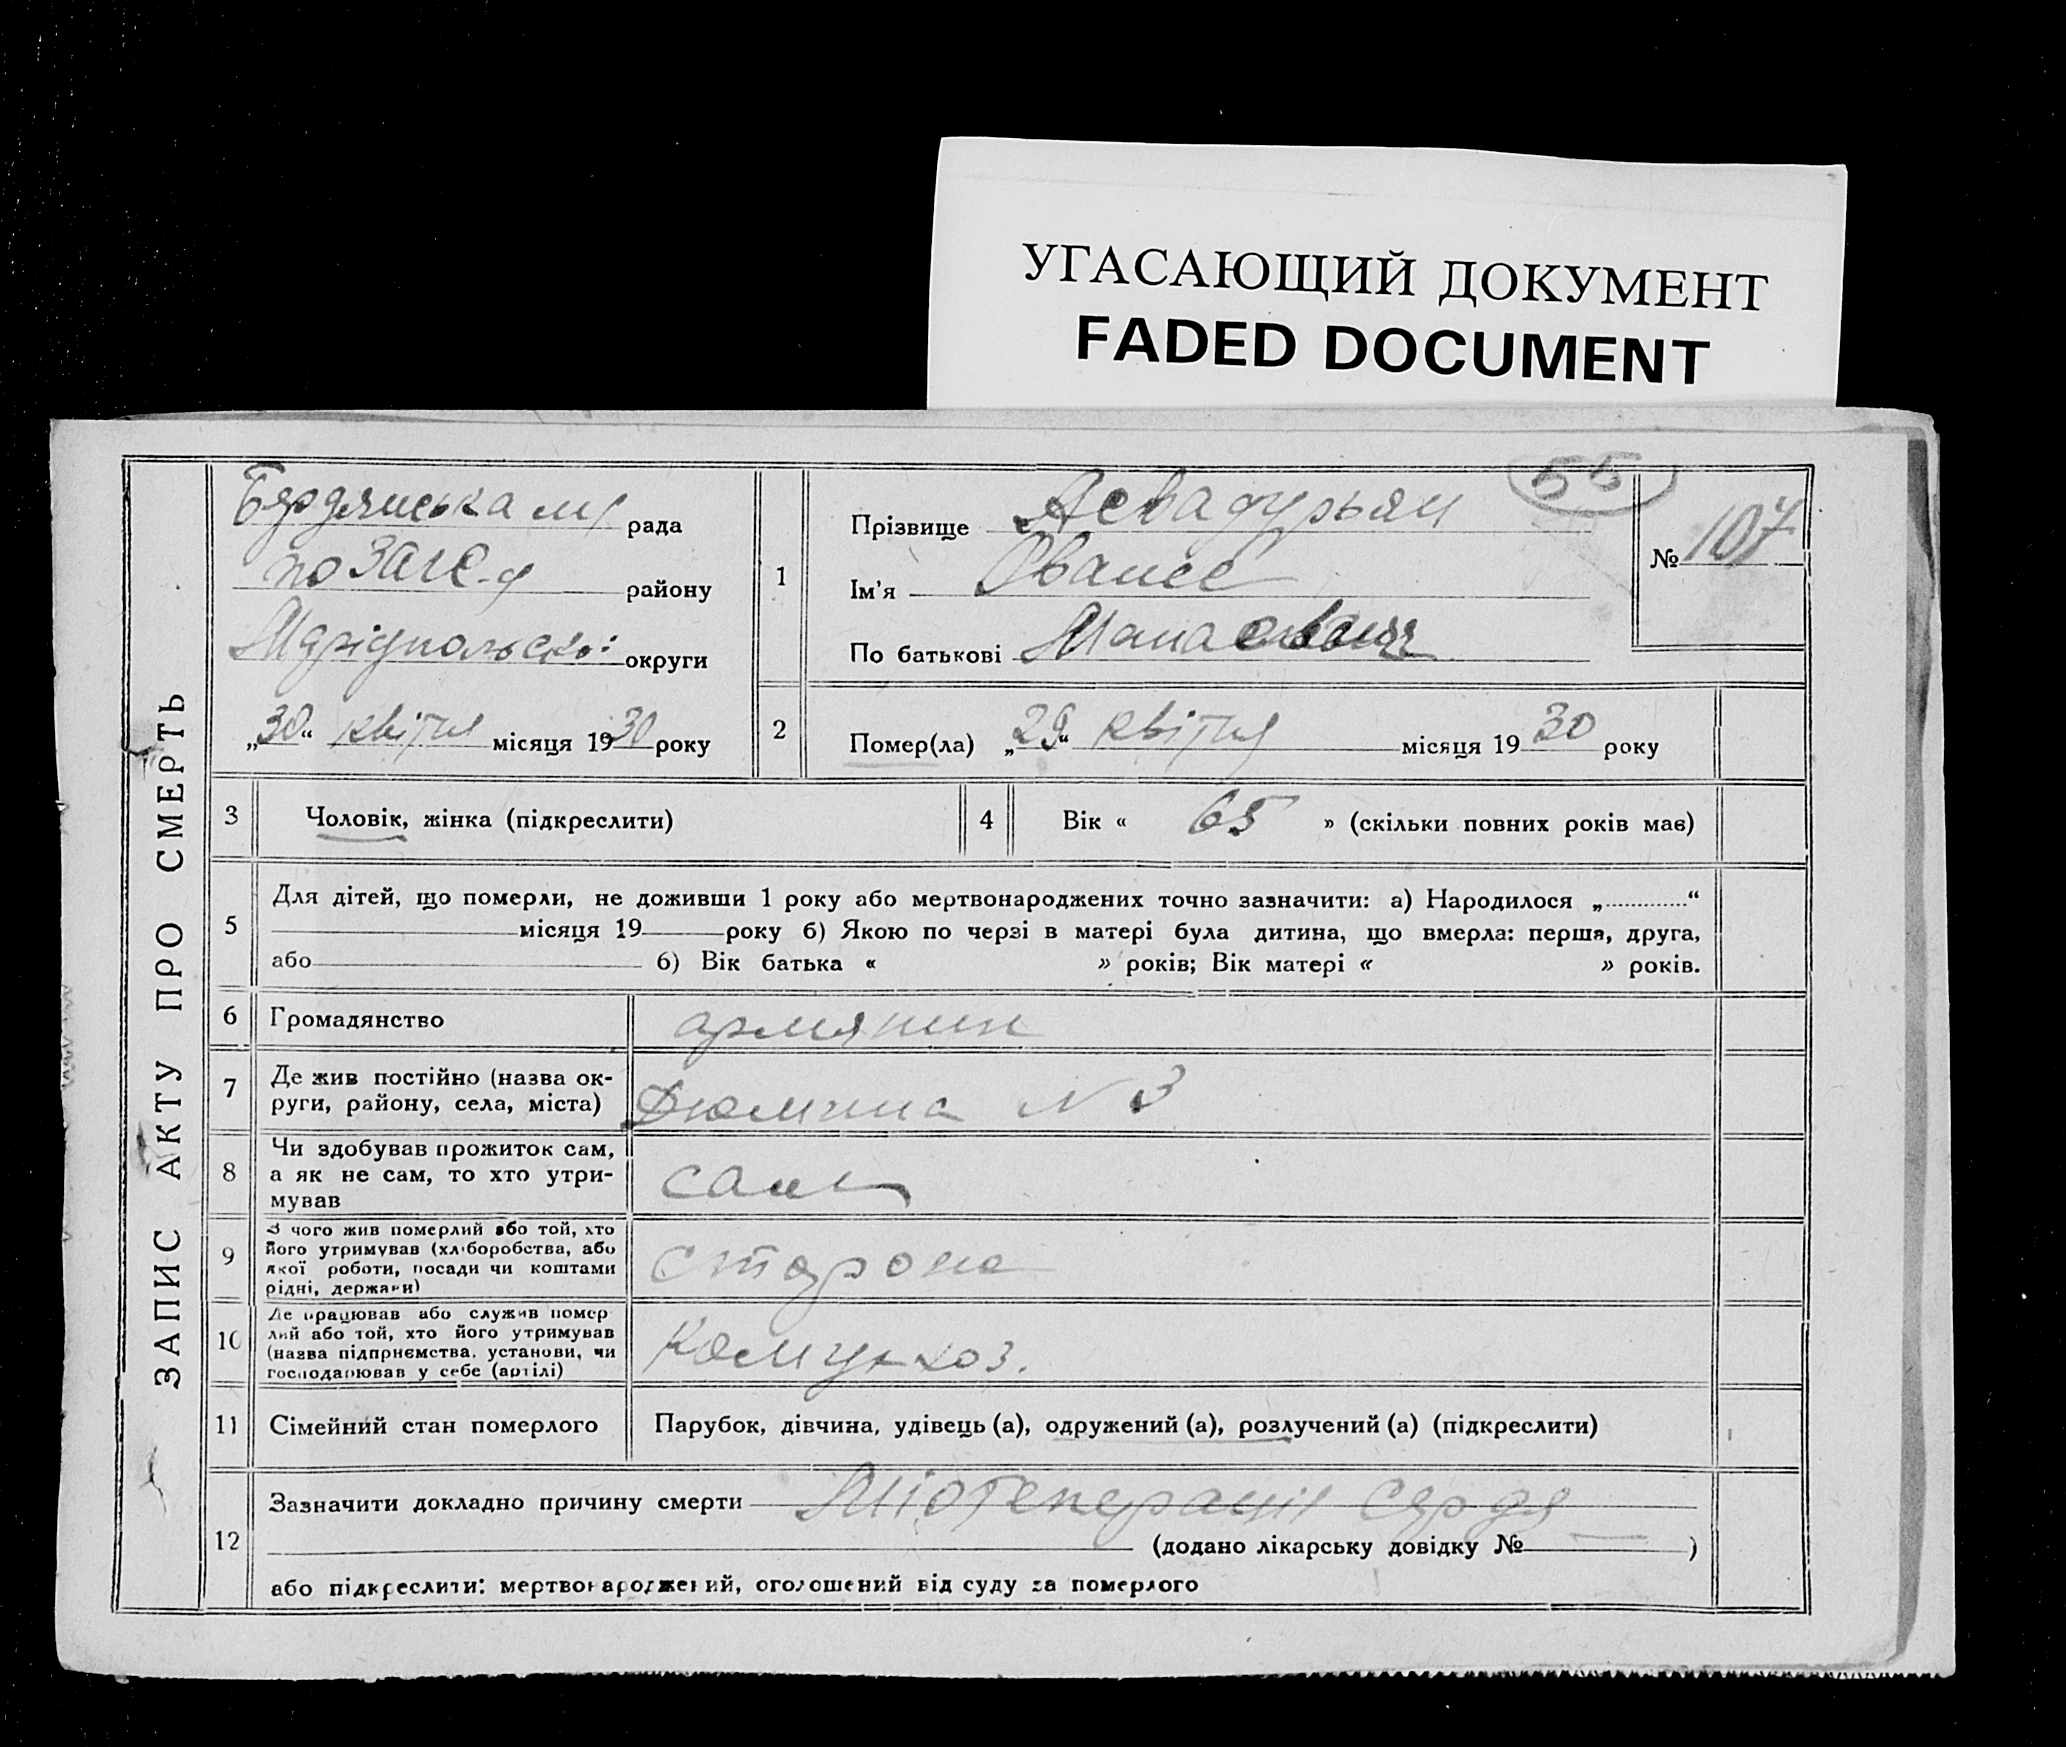 УГАСАЮЩИЙ ДОКУМЕНТ
FADED DOCUMENT
ЗАПИС АКТУ ПРО СМЕРТЬ
Бердянська м/ рада
по ЗАГС-у району
Маріупольськ: округи
„30“ квітня місяця 1930 року
55
№ 107
1 Прізвище Асвадурьян
Ім'я Ованес
По батькові Манасович
2 Помер(ла) „29“ квітня місяця 1930 року
3 Чоловік, жінка (підкреслити)
4 Вік « 65 » (скільки повних років має)
5 Для дітей, що померли, не доживши 1 року або мертвонароджених точно зазначити: а) Народилося „............“
місяця 19 року б) Якою по черзі в матері була дитина, що вмерла: перша, друга,
або б) Вік батька « » років; Вік матері « » років.
6 Громадянство армянин
7 Де жив постійно (назва ок-
руги, району, села, міста) Дюмина N 3
8 Чи здобував прожиток сам,
а як не сам, то хто утри-
мував сам
9 З чого жив померлий або той, хто
його утримував (хліборобства, або
якої роботи, посади чи коштами
рідні, держави) сторож
10 Де працював або служив помер
лий або той, хто його утримував
(назва підприємства, установи, чи
господарював у себе (артілі) Комунхоз.
11 Сімейний стан померлого Парубок, дівчина, удівець (а), одружений (а), розлучений (а) (підкреслити)
12 Зазначити докладно причину смерти Міодегенерація серця
(додано лікарську довідку № )
або підкреслити: мертвонароджений, оголошений від суду за померлого